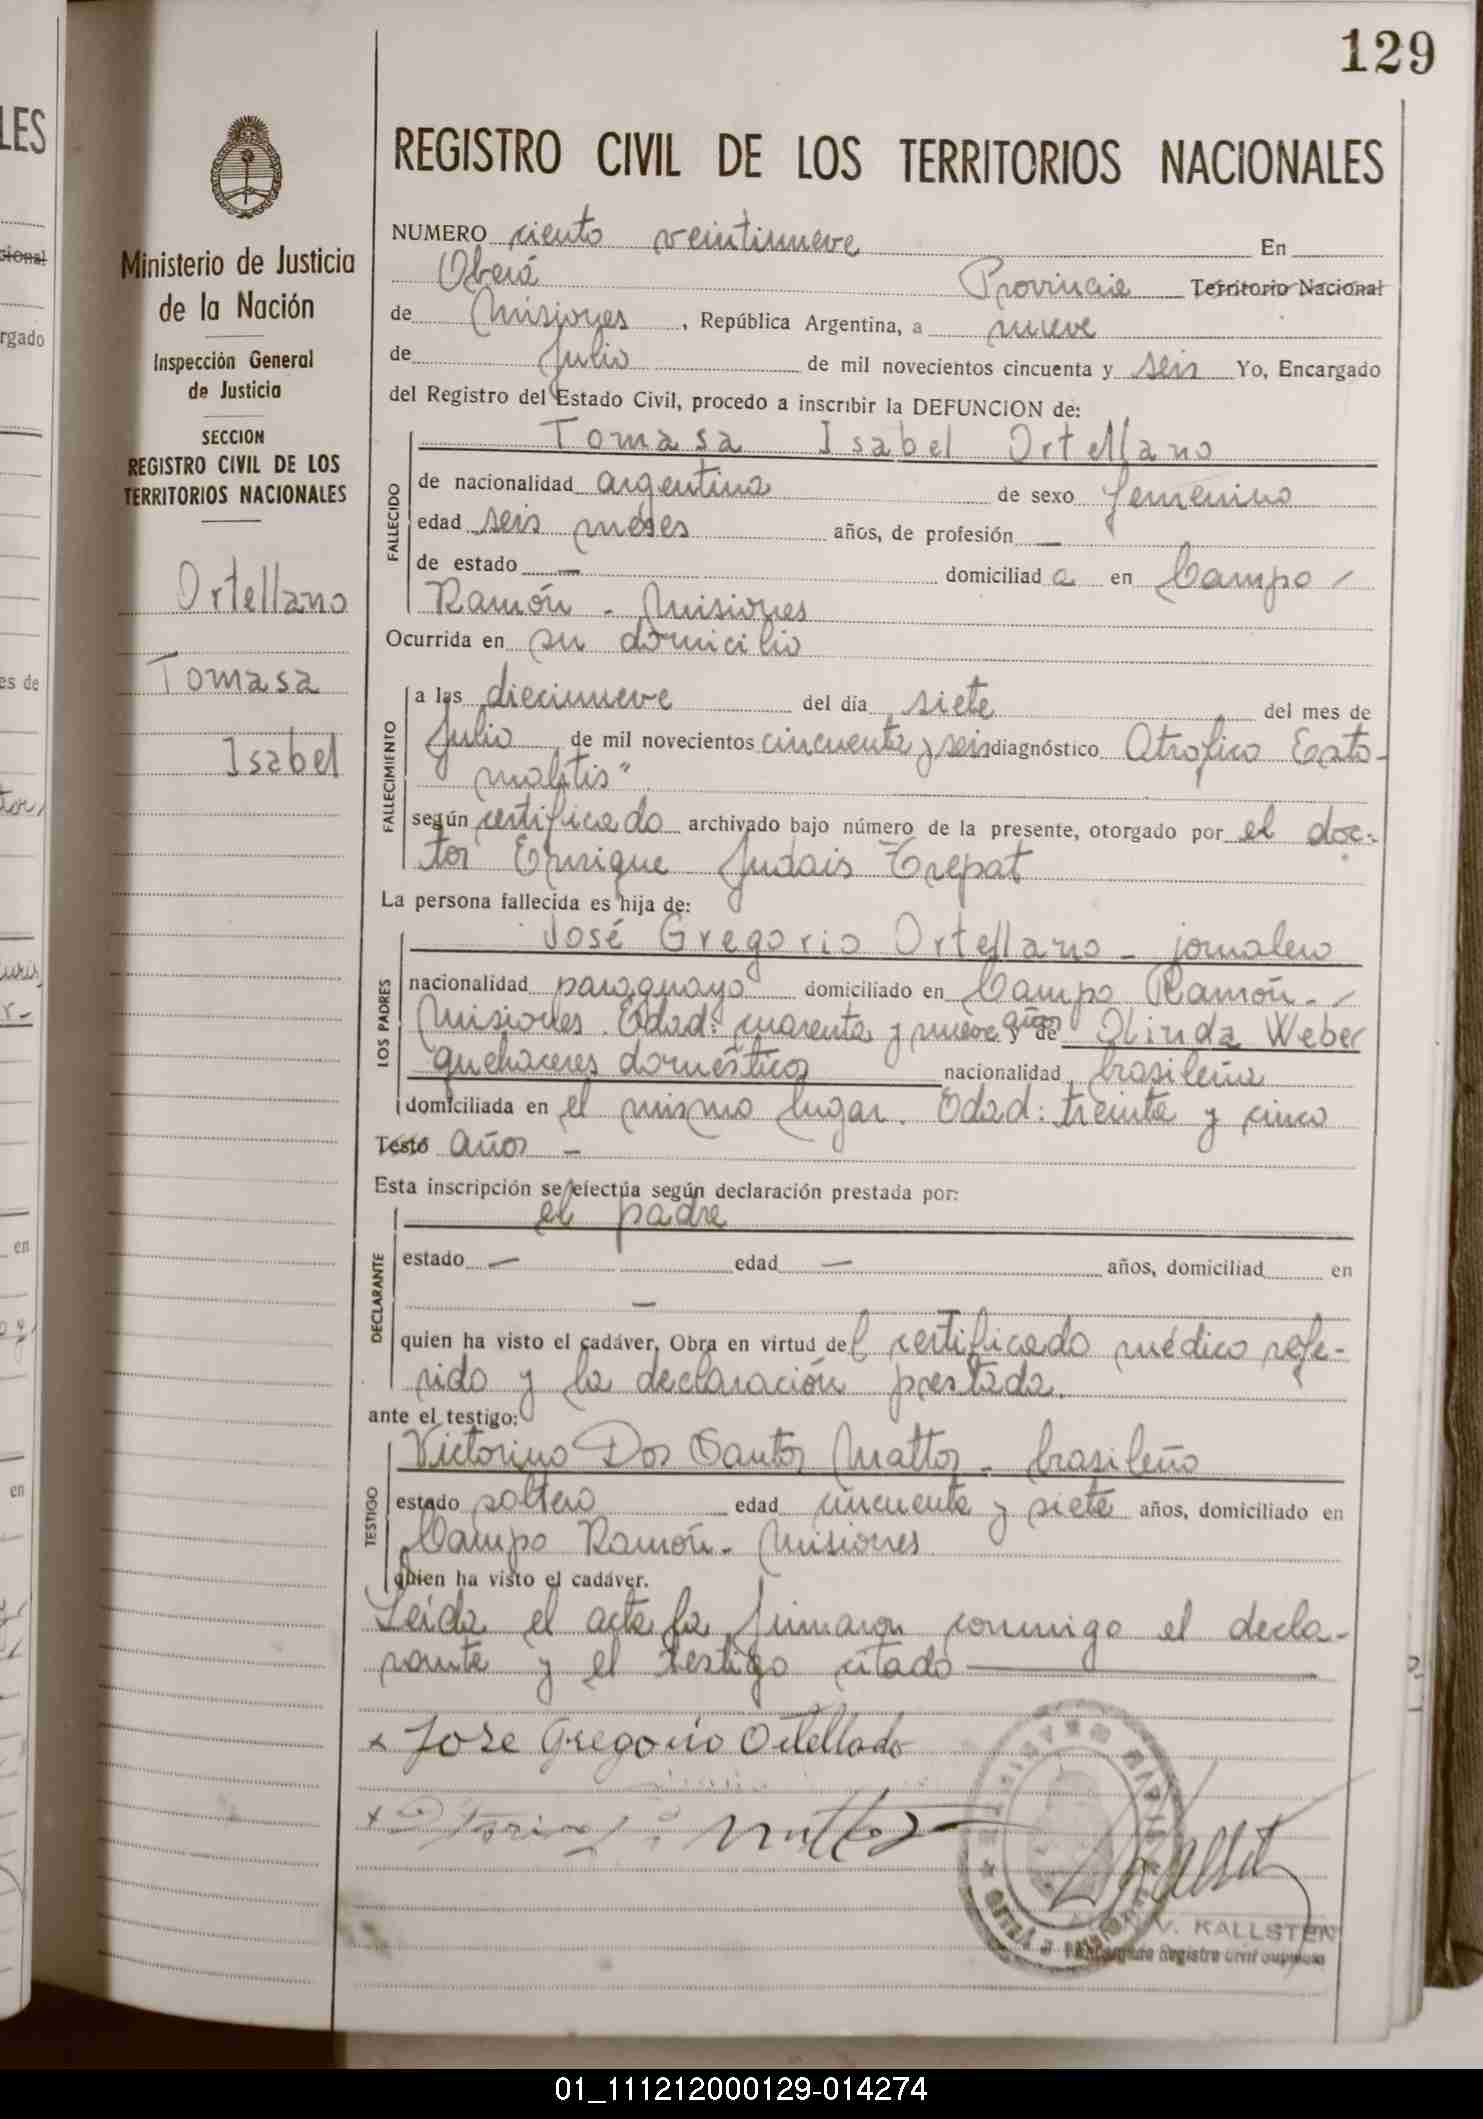 129
REGISTRO CIVIL DE LOS TERRITORIOS NACIONALES
Ministerio de Justicia
de la Nación
Inspección General
de Justicia
SECCION
REGISTRO CIVIL DE LOS
TERRITORIOS NACIONALES
Ortellano
Tomasa
Isabel
NUMERO ciento veintinueve En
Oberá Provincia Territorio Nacional
de Misiones, República Argentina, a nueve
de Julio de mil novecientos cincuenta y seis Yo, Encargado
del Registro del Estado Civil, procedo a inscribir la DEFUNCION de:
Tomasa Isabel Ortellano
FALLECIDO
de nacionalidad argentina de sexo femenino
edad seis meses años, de profesión —
de estado — domiciliada en Campo
Ramón - Misiones
Ocurrida en su domicilio
FALLECIMIENTO
a las diecinueve del día siete del mes de
Julio de mil novecientos cincuenta y seis diagnóstico Atrofico
según certificado archivado bajo número de la presente, otorgado por el doc-
tor Enrique Judais Trepat
La persona fallecida es hija de:
LOS PADRES
José Gregorio Ortellano - jornalero
nacionalidad paraguayo domiciliado en Campo Ramón -
Misiones. Edad: cuarenta y nueve años y de Olinda Weber
quehaceres domésticos nacionalidad brasileña
domiciliada en el mismo lugar. Edad: treinta y cinco
Testó años —
Esta inscripción se efectúa según declaración prestada por:
el padre
DECLARANTE
estado — edad — años, domiciliad en
—
quien ha visto el cadáver. Obra en virtud del certificado médico refe-
rido y la declaración prestada.
ante el testigo:
Victorino Dos Santos Mattos - brasileño
TESTIGO
estado soltero edad cincuenta y siete años, domiciliado en
Campo Ramón - Misiones
quien ha visto el cadáver.
Leída el acta la firmaron conmigo el decla-
rante y el testigo citado
x Jose Gregorio Ortellado
V. KALLSTEN
Encargado Registro Civil Suplente
01_111212000129-014274